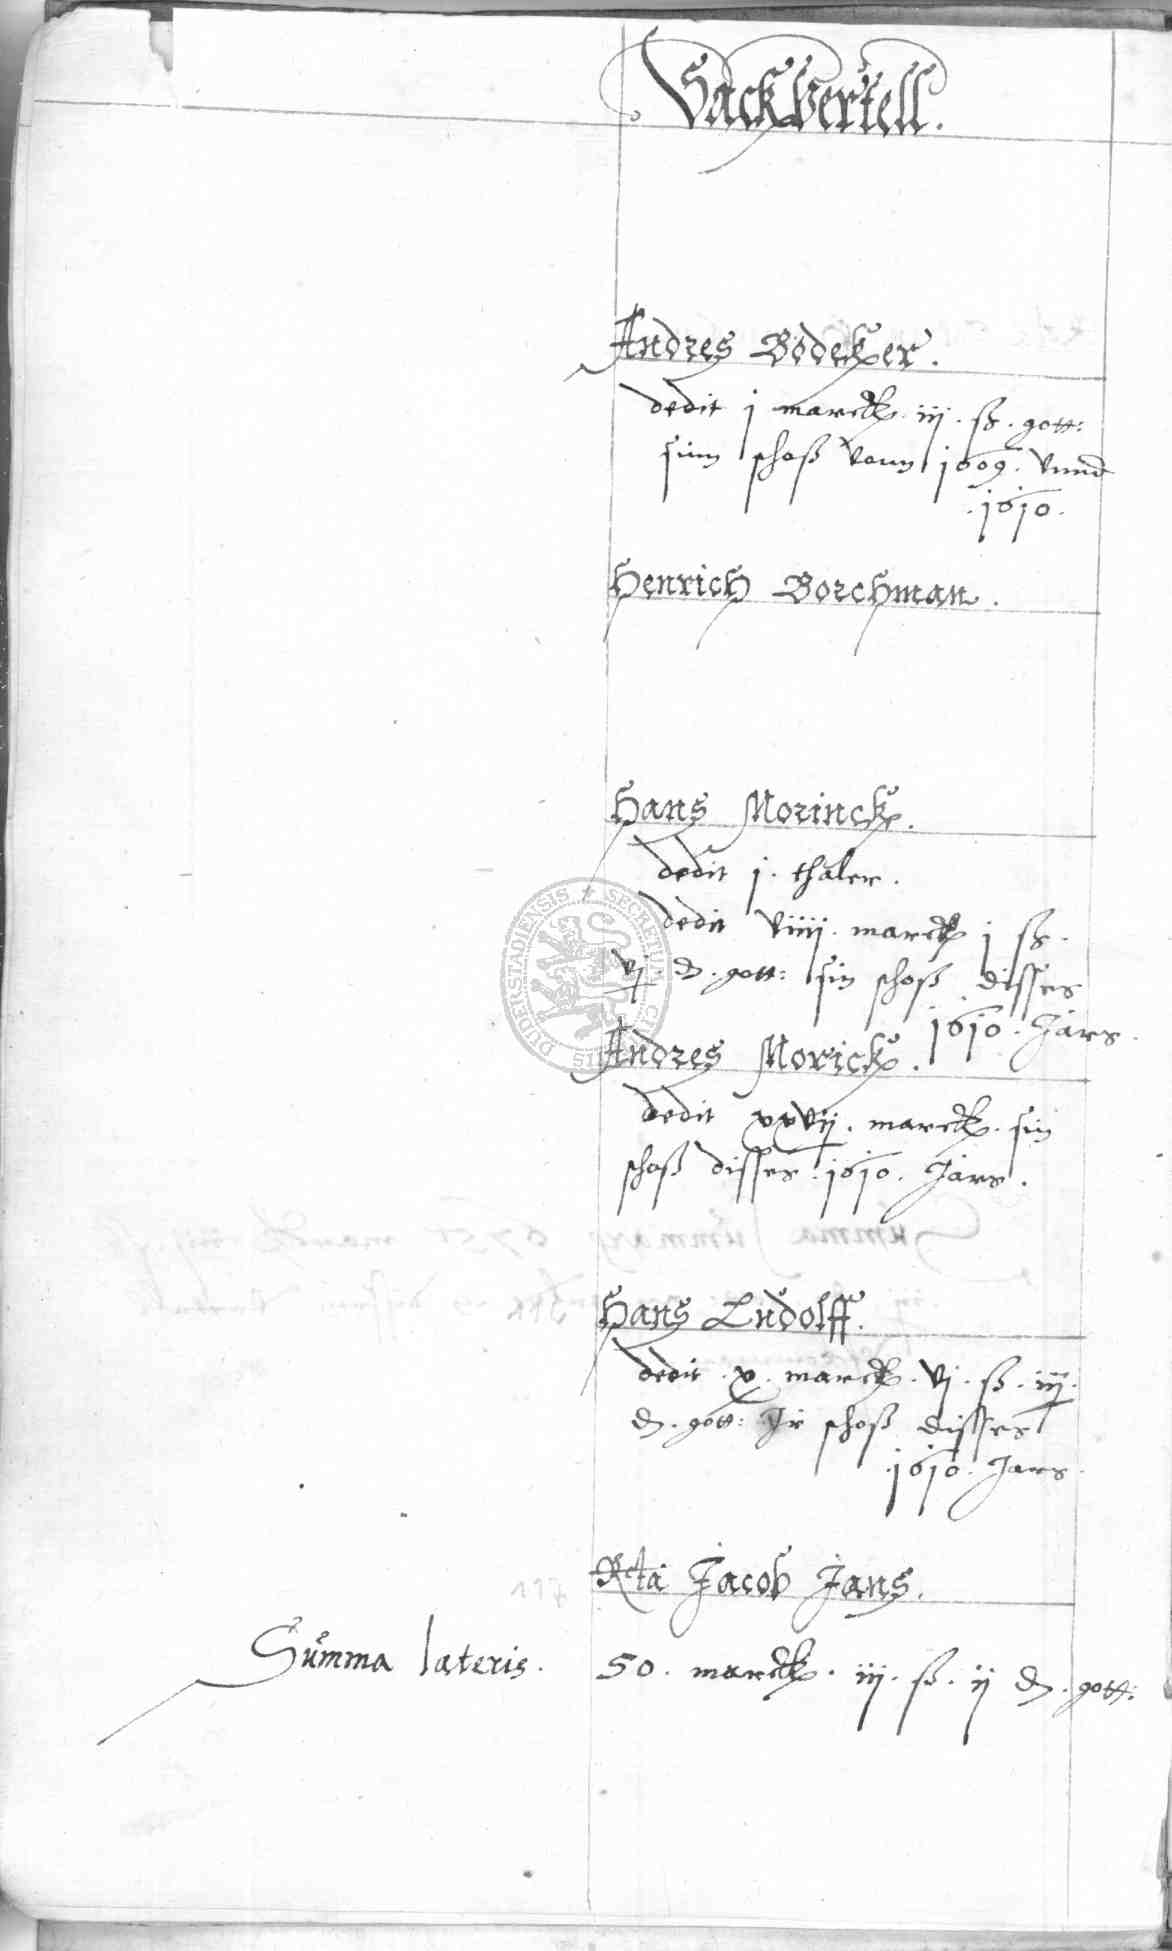 Sackvertell.
Andres Bödeker.
dedit j marck. iij. ß. gott:
sinn schoß vonn 1609. vnnd
.1610.
Henrich Borchman.
Hans Morinck.
dedit j. thaler.
dedit viiij. marck j ß.
vj. d. gott: sin schoß disses
1610. Jars.
Andres Morick.
dedit xxvij. marck. sin
schoß disses .1610. Jars.
Hans Ludolff.
dedit .x. marck. vj. ß. iij.
d. gott: Ir schoß disses
.1610. Jars.
Rta Jacob Jans.
Summa lateris. 50. marck. iij. ß. ij d. gott:
SECRETUM
DUDERSTADIENSIS
117